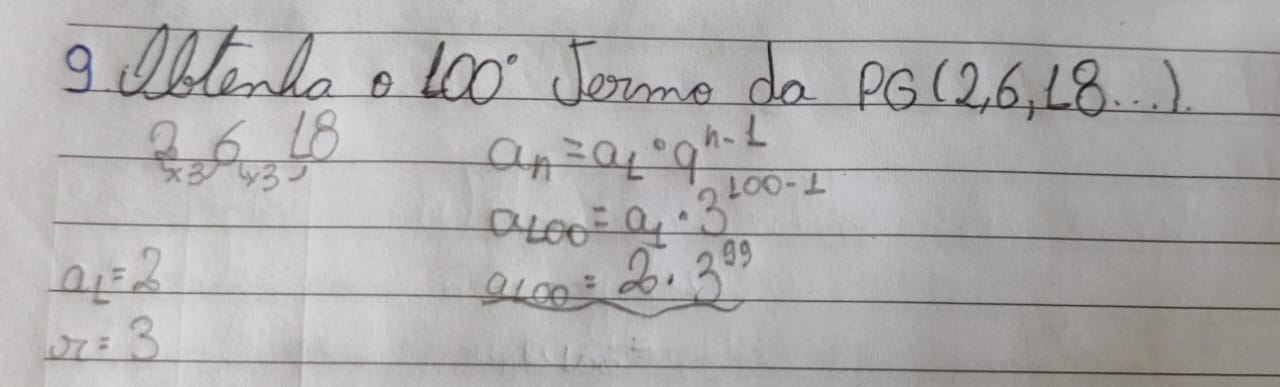 9 Obtenha o 100° termo da PG (2,6,18...).
2 6 18
x3 x3
aₙ = a₁ · qⁿ⁻¹
a₁₀₀ = a₁ · 3¹⁰⁰⁻¹
a₁₀₀ = 2 · 3⁹⁹
a₁ = 2
r = 3